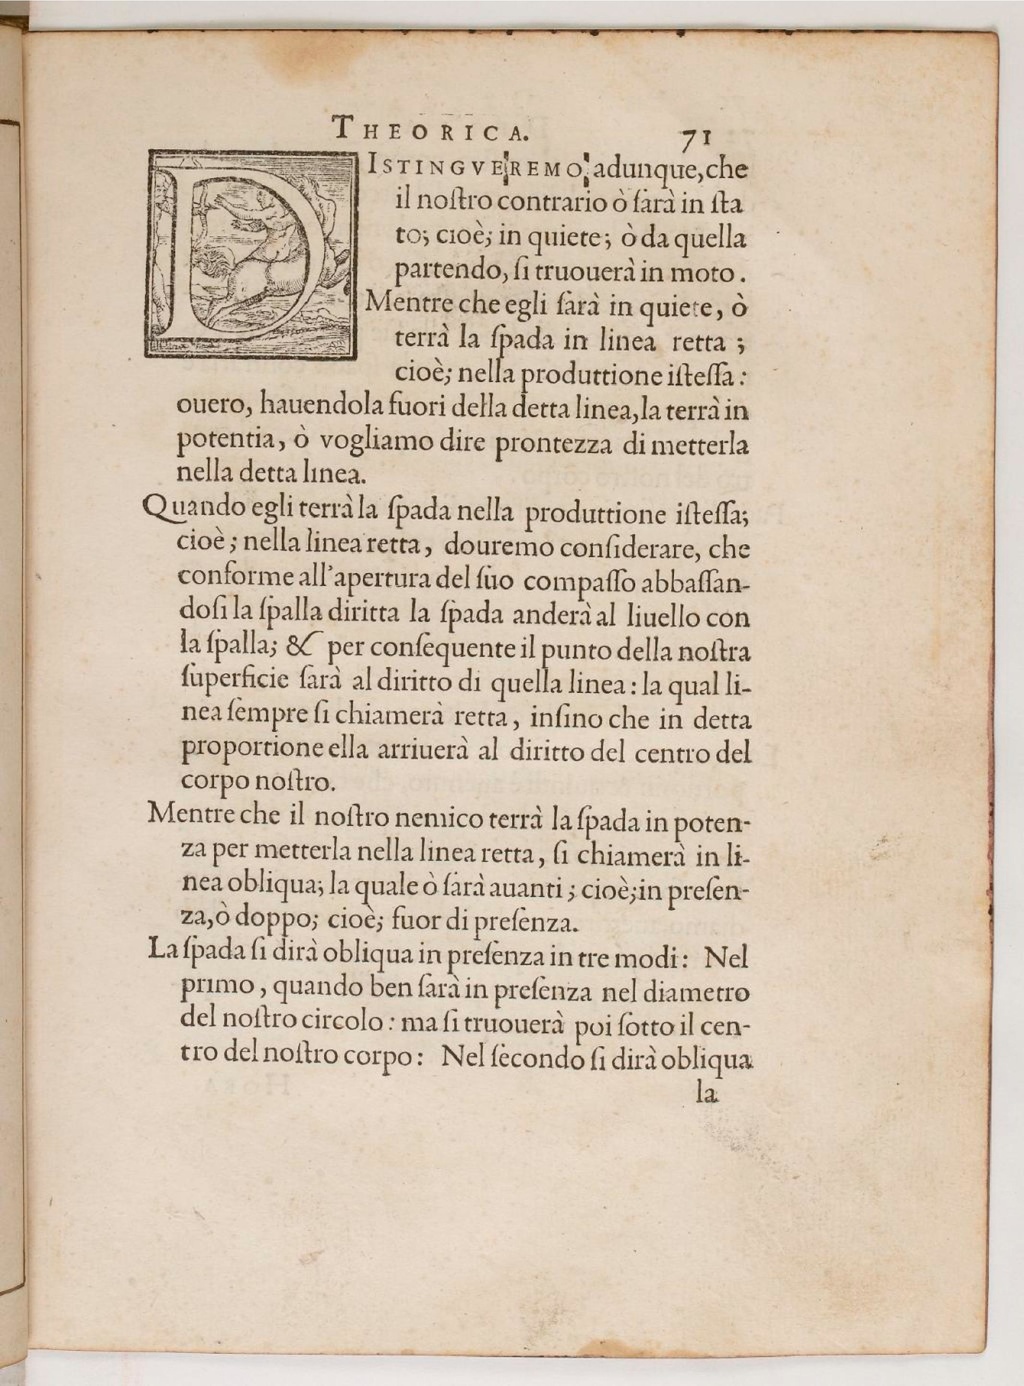 THEORICA. 71
DISTINGVEREMO adunque, che
il noſtro contrario ò ſarà in ſta
to; cioè; in quiete; ò da quella
partendo, ſi truouerà in moto.
Mentre che egli ſarà in quiete, ò
terrà la ſpada in linea retta;
cioè; nella produttione iſteſſa:
ouero, hauendola fuori della detta linea, la terrà in
potentia, ò vogliamo dire prontezza di metterla
nella detta linea.
Quando egli terrà la ſpada nella produttione iſteſſa;
cioè; nella linea retta, douremo conſiderare, che
conforme all'apertura del ſuo compaſſo abbaſſan-
doſi la ſpalla diritta la ſpada anderà al liuello con
la ſpalla; & per conſequente il punto della noſtra
ſuperficie ſarà al diritto di quella linea: la qual li-
nea ſempre ſi chiamerà retta, inſino che in detta
proportione ella arriuerà al diritto del centro del
corpo noſtro.
Mentre che il noſtro nemico terrà la ſpada in poten-
za per metterla nella linea retta, ſi chiamerà in li-
nea obliqua; la quale ò ſarà auanti; cioè; in preſen-
za, ò doppo; cioè; fuor di preſenza.
La ſpada ſi dirà obliqua in preſenza in tre modi: Nel
primo, quando ben ſarà in preſenza nel diametro
del noſtro circolo: ma ſi truouerà poi ſotto il cen-
tro del noſtro corpo: Nel ſecondo ſi dirà obliqua
la